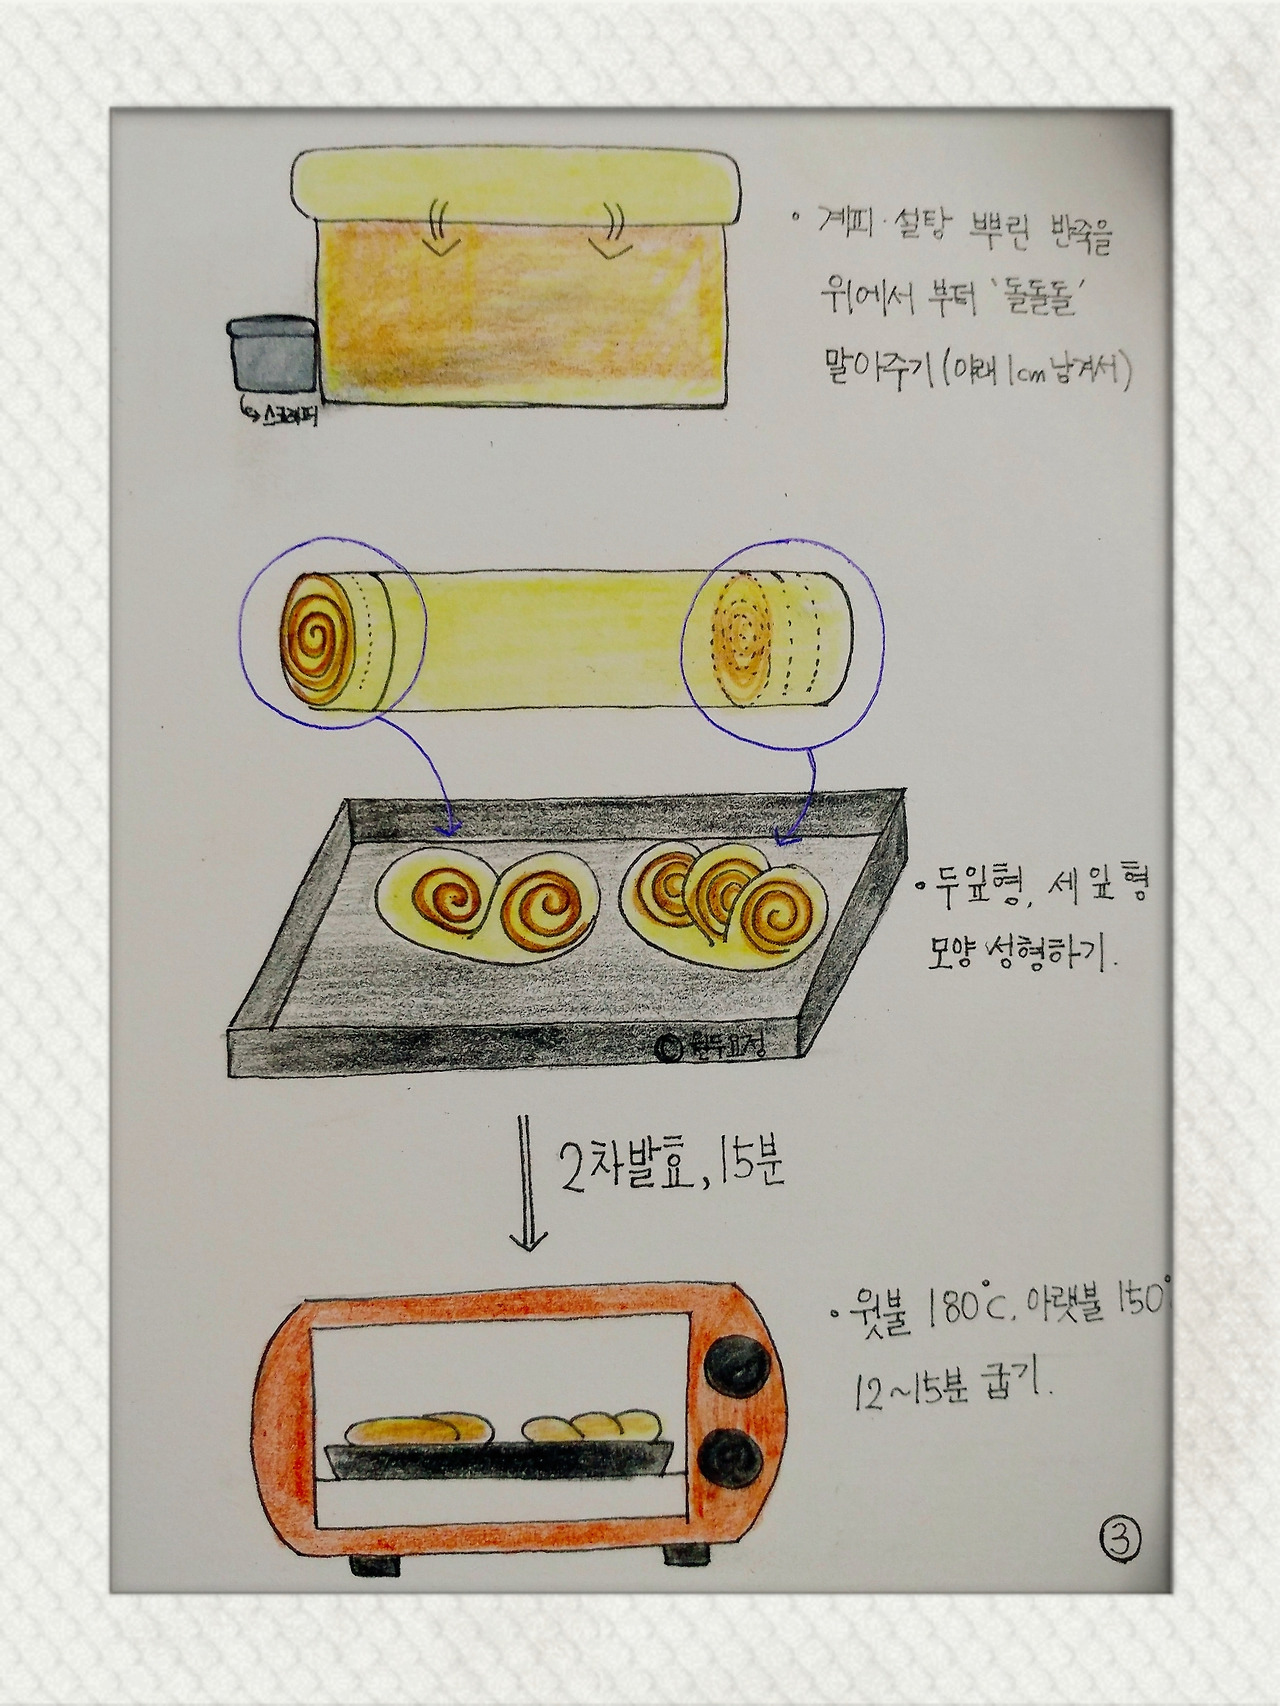 • 계피·설탕 뿌린 반죽을
위에서 부터 '돌돌돌'
말아주기 (아래 1cm 남겨서)
↳ 스크래퍼
• 두잎형, 세잎형
모양 성형하기.
© 원두요정
2차발효, 15분
• 윗불 180℃, 아랫불 150°
12~15분 굽기.
③